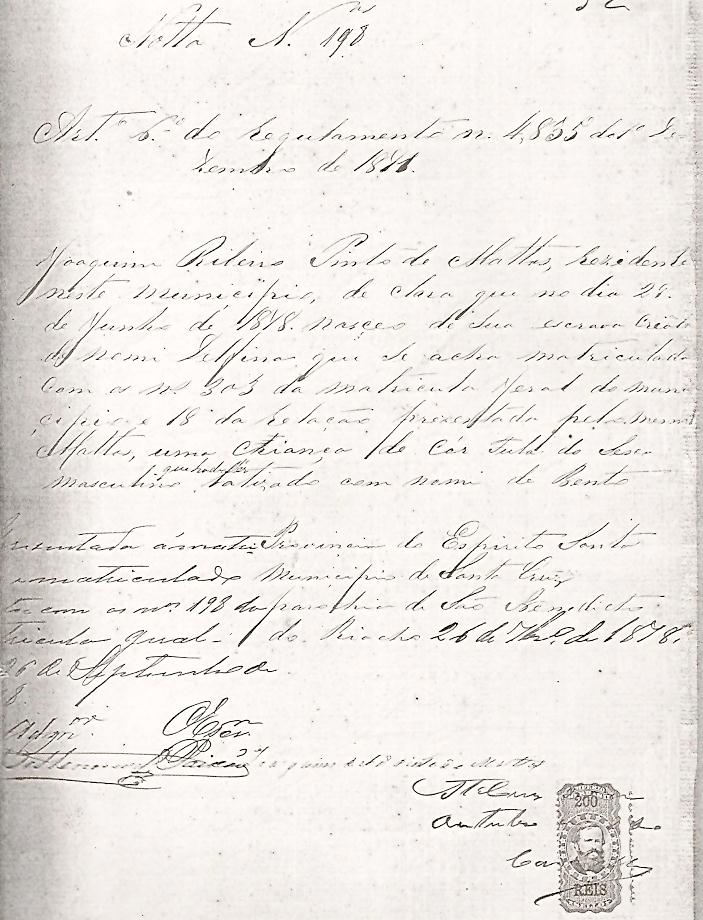 52
Notta N. 198
Art.º 6.º do Regulamento n. 4,835 do 1º De-
zembro de 1871.
Joaquim Ribeiro Pinto de Mattos, rezidente
neste municipio, de clara que no dia 21.
de Junho de 1878. nasceo de sua escrava Crioula
de nomi Delfina que se acha matriculada
com os nº 303 da matricula geral do muni
cipio e 18 da relação prezentada pelo mesmo
Mattos, uma criança de Côr fula do Sexo
masculino batizado com nomi de Bento
Província do Espirito Santo
matriculado Municipio de Santa Cruz
com os nos. 198 da parochia de São Benedicto
do Riacho 26 de 7bro. de 1878.
26 de Septembro de
8.
O Escr.am
Paixão
Sta Cruz
Outubro
200
REIS